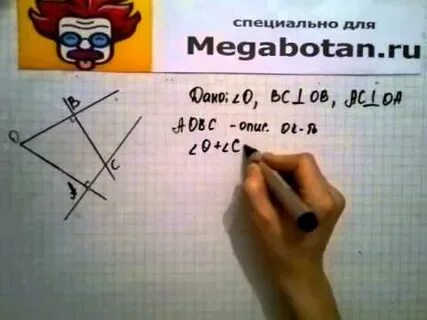 специально для
Megabotan.ru
Дано: ∠O, BC⊥OB, AC⊥OA
AOBC - опис. ок-ть
∠O+∠C
B
O
C
A